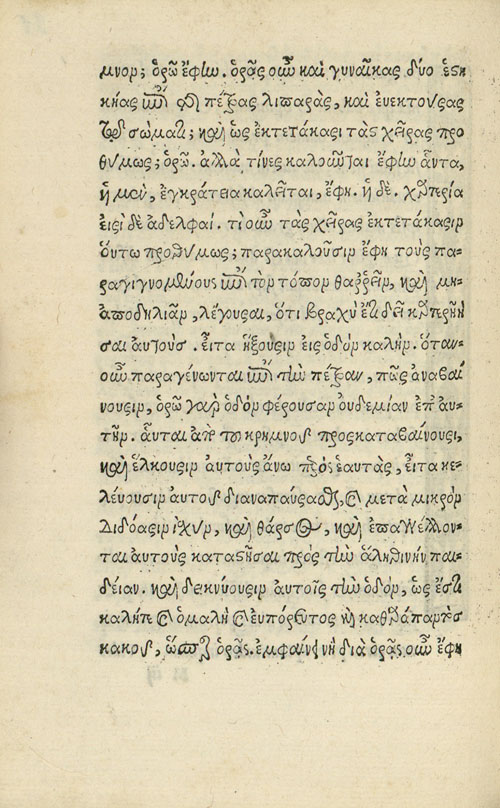 μνον; ὁρῶ ἔφην. ὁρᾷς οὖν καὶ γυναῖκας δύο ἑστη
κυίας ἐπὶ τῇ πέτρᾳ λιπαρὰς, καὶ ἐυεκτούσας
τῷ σώματι; καὶ ὡς ἐκτετάκασι τὰς χεῖρας προ
θύμως; ὁρῶ. ἀλλὰ τίνες καλοῦνται ἔφην αὗται,
ἡ μὲν, ἐγκράτεια καλεῖται, ἔφη. ἡ δὲ. καρτερία
εἰσὶ δὲ ἀδελφαί. τί οὖν τὰς χεῖρας ἐκτετάκασιν
ὅυτω προθύμως; παρακαλοῦσιν ἔφη τοὺς πα
ραγιγνομένους ἐπὶ τὸν τόπον θαῤῥεῖν, καὶ μὴ
ἀποδειλιᾶν, λέγουσαι, ὅτι βραχὺ ἔτι δεῖ καρτερῆ
σαι αυτοὺς. εἶτα ἥξουσιν εἰς ὁδὸν καλήν. ὅταν
οὖν παραγένωνται ἐπὶ τὴν πέτραν, πῶς ἀναβαί
νουσιν, ὁρῶ γὰρ ὁδὸν φέρουσαν ουδεμίαν ἐπ' αυ
τήν. αὗται ἀπὸ τοῦ κρημνοῦ προσκαταβαίνουσι,
καὶ ἕλκουσιν αυτοὺς ἄνω πρὸς ἑαυτὰς, εἶτα κε
λέυουσιν αυτοὺς διαναπαύσασθαι, καὶ μετὰ μικρὸν
Διδόασιν ἰχὺν, καὶ θάρσος, καὶ ἐπαγγέλλον
ται αυτοὺς καταστῆσαι πρὸς τὴν ἀληθινὴν παι
δείαν. καὶ δεικνύουσιν αυτοῖς τὴν ὁδὸν, ὡς ἔστι
καλή τε καὶ ὁμαλὴ καὶ ἐυπόρευτος καὶ καθαρὰ παντὸς
κακοῦ, ὥσπερ ὁρᾷς. ἐμφαίνει νὴ δία ὁρᾷς οὖν ἔφη